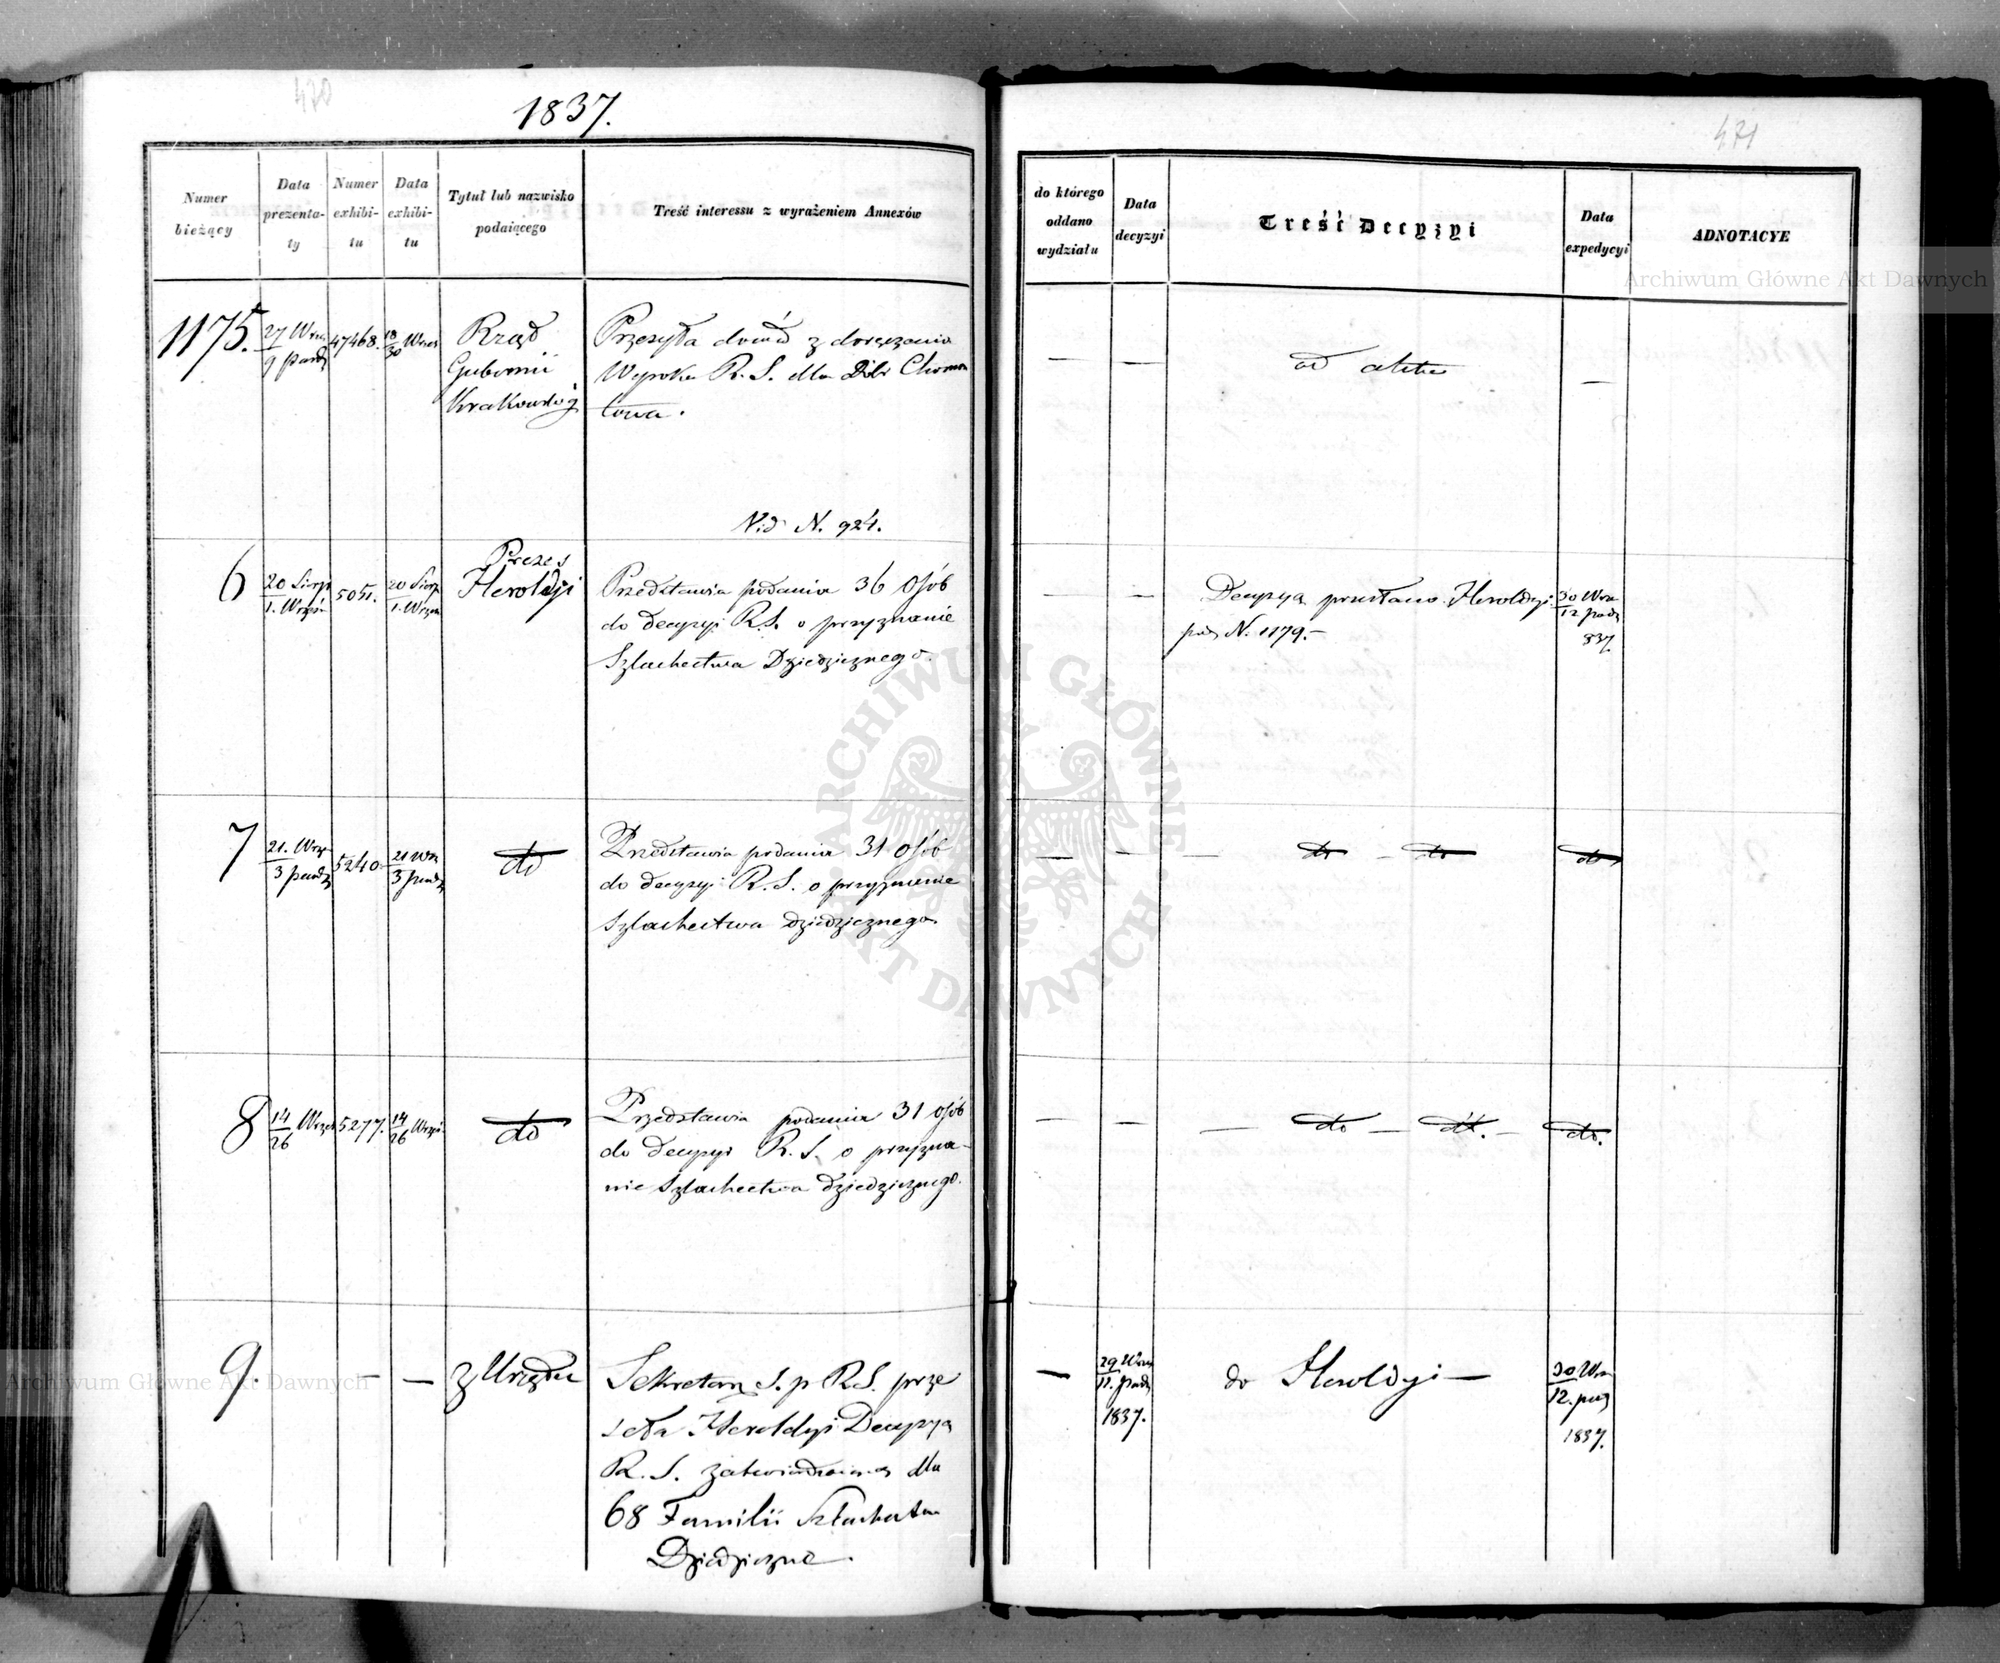 470
1837.
Numer
bieżący
Data
prezenta-
ty
Numer
exhibi-
tu
Data
exhibi-
tu
Tytuł lub nazwisko
podaiącego
Treść interessu z wyrażeniem Annexów
1175.
27 Wrz
9 paźdz
47468.
18
30 Wrześ
Rząd
Gubernii
Krakowskiej
Przesyła dowód z doręczenia
Wyroku R. S. dla Dóbr
Vid N. 924.
6
20 Sierp
1. Wrześn
5051.
20 Sierp
1. Wrześn
Prezes
Heroldyi
Przedstawia podania 36 Osób
do decyzyi R. S. o przyznanie
Szlachectwa Dziedzicznego.
7
21. Wrz
3 paźdz
5240.
21 Wrz
3 paźdz
do
Przedstawia podania 31 osób
do decyzyi R. S. o przyznanie
Szlachectwa dziedzicznego.
8
14
26 Wrześ
5277.
14
26 Wrześ
do
Przedstawia podania 31 osób
do decyzyi R. S. o przyzna-
nie Szlachectwa dziedzicznego.
9.
—
—
z Urzędu
Sekretarz S. p R. S. prze
seła Heroldyi Decyzyą
R. S. dla
68 Familii Szlachectwo
Dziedziczne.
471
do którego
oddano
wydziału
Data
decyzyi
Treść Decyzyi
Data
expedycyi
ADNOTACYE
— — ad acta —
— — Decyzyą przesłano Heroldyi
pod N. 1179.—
30 Wrz
12 paźdz
837.
— — — do — do do
— — — do — do. — do.
—
29 Wrz
11. paźdz
1837.
do Heroldyi —
30 Wrz
12. paź
1837.
Archiwum Główne Akt Dawnych
ARCHIWUM GŁÓWNE AKT DAWNYCH
Archiwum Główne Akt Dawnych